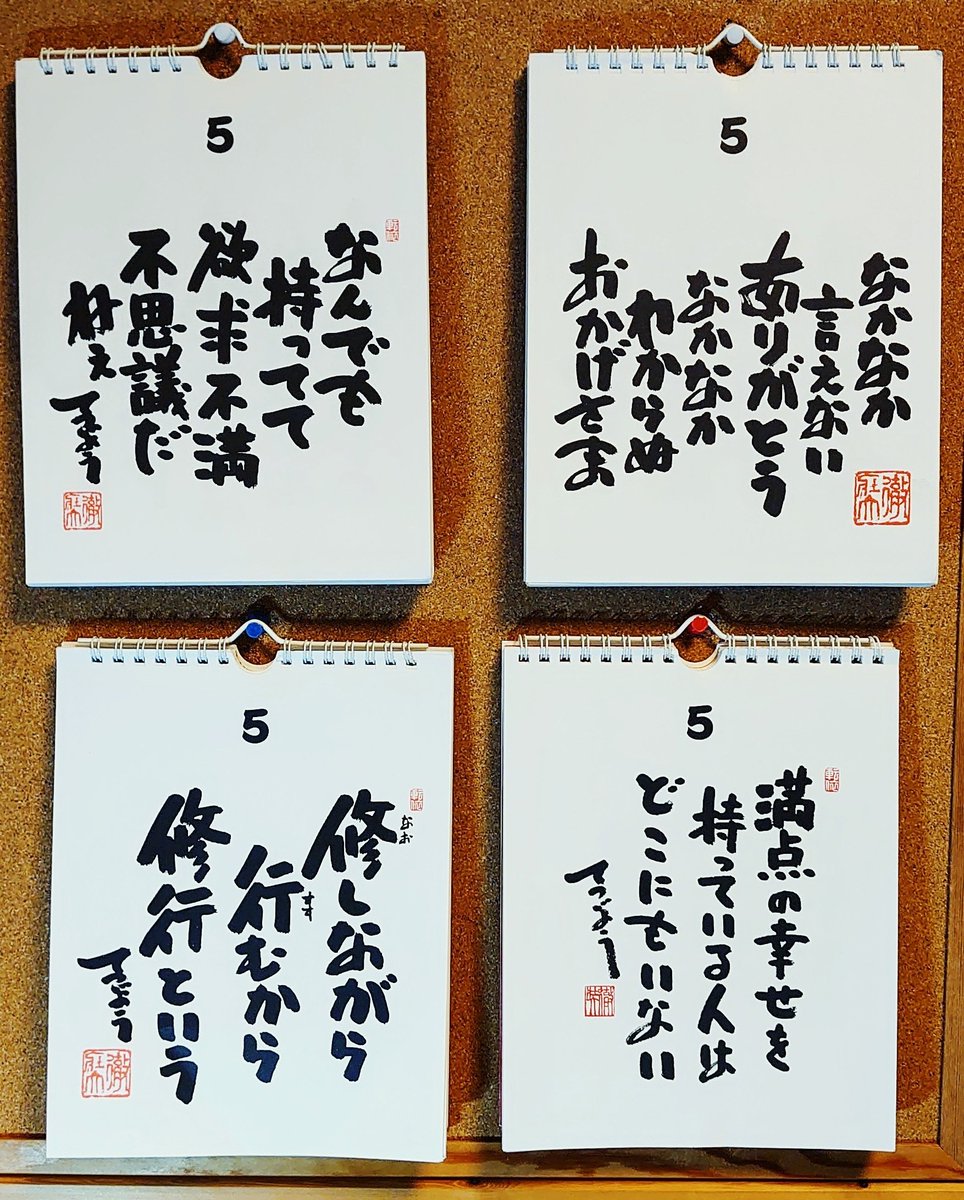 5
なんでも
持ってて
欲求不満
不思議だ
ねぇ
てつじょう
5
なかなか
言えない
ありがとう
なかなか
わからぬ
おかげさま
5
修しながら
なお
行むから
すす
修行という
てつじょう
5
満点の幸せを
持っている人は
どこにもいない
てつじょう